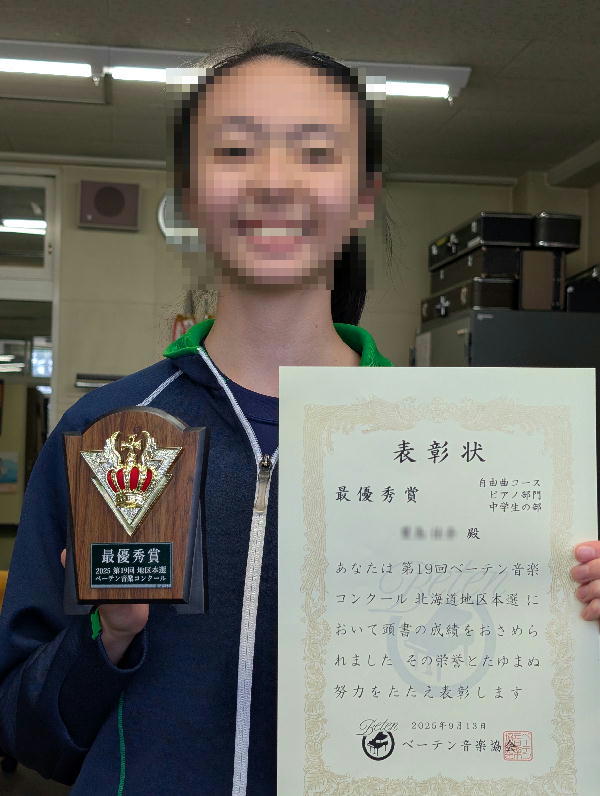 最優秀賞
2025 第19回 地区本選
ベーテン音楽コンクール
表彰状
最優秀賞
自由曲コース
ピアノ部門
中学生の部
殿
あなたは 第19回ベーテン音楽
コンクール 北海道地区本選 に
おいて頭書の成績をおさめら
れました その栄誉とたゆまぬ
努力をたたえ表彰します
Beten
2025年9月13日
ベーテン音楽協会